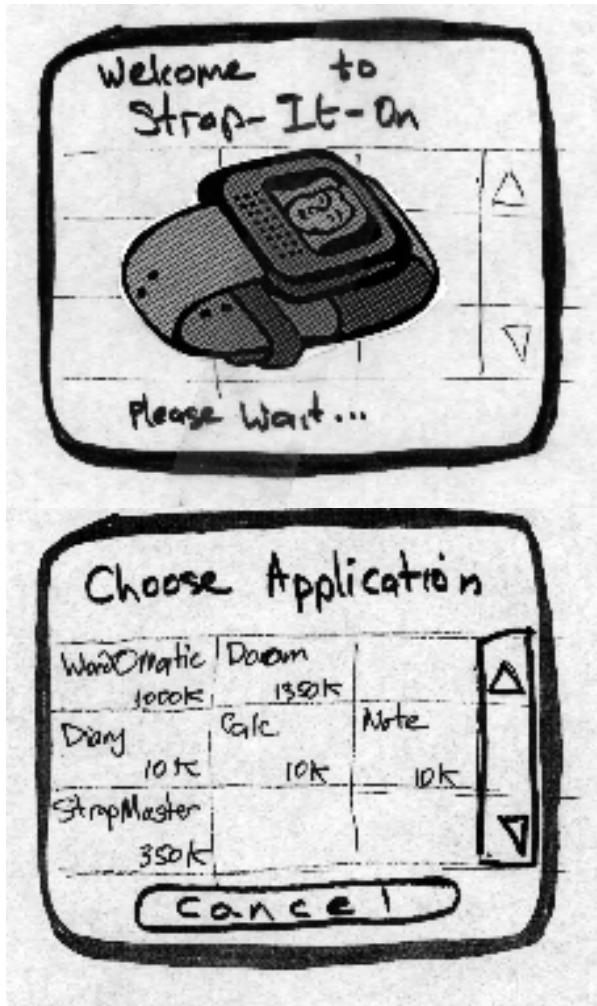 Welcome to
Strap-It-On
Please Wait...
Choose Application
WordOmatic Doom
1000K 1350K
Diary Calc Note
10K 10K 10K
StrapMaster
350K
Cancel